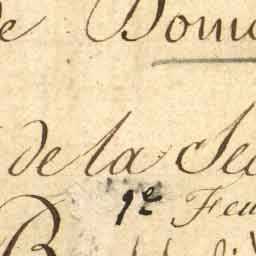 de Dom
de la Sec
1e Feu